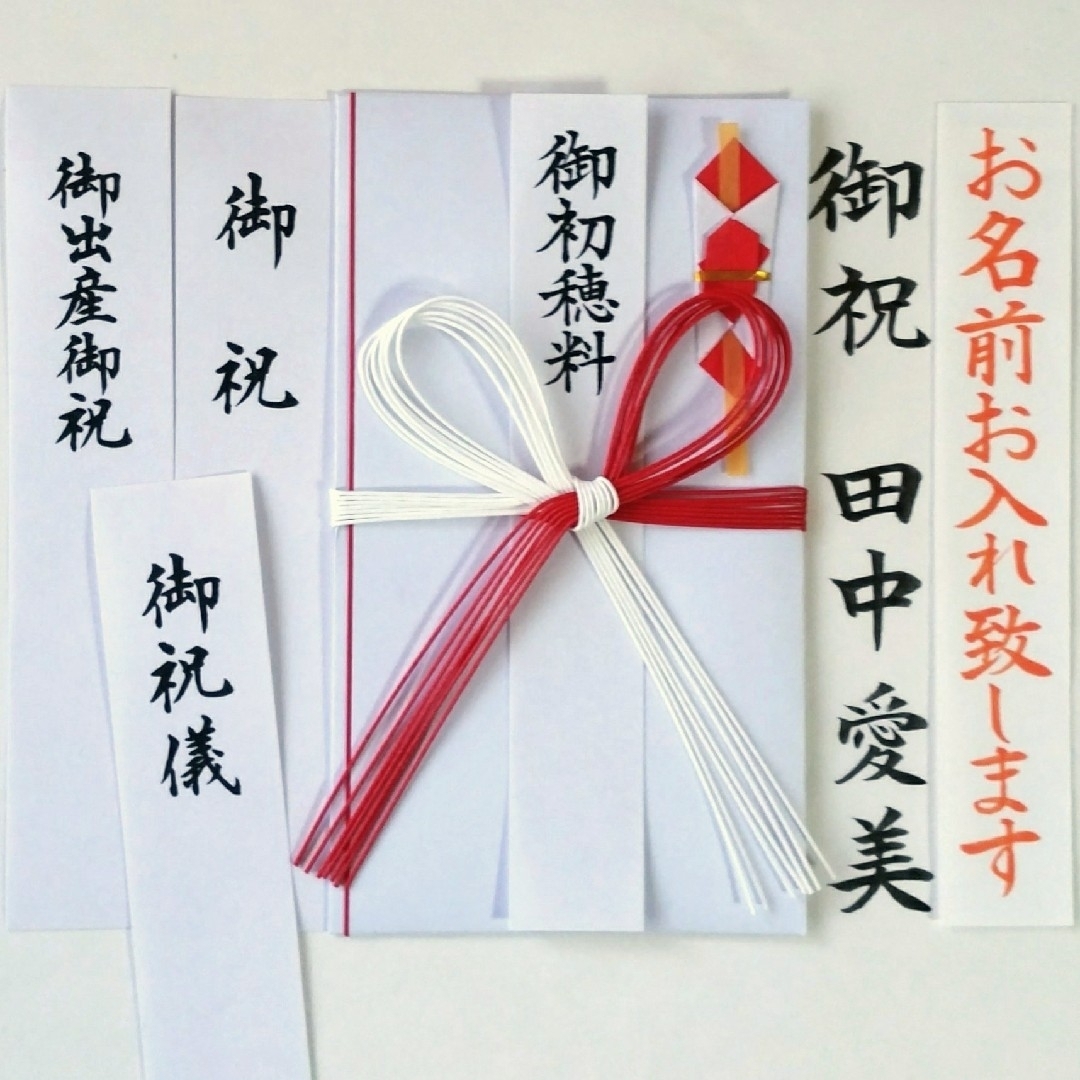 お名前お入れ致します
御祝 田中愛美
御初穂料
御祝
御出産御祝
御祝儀